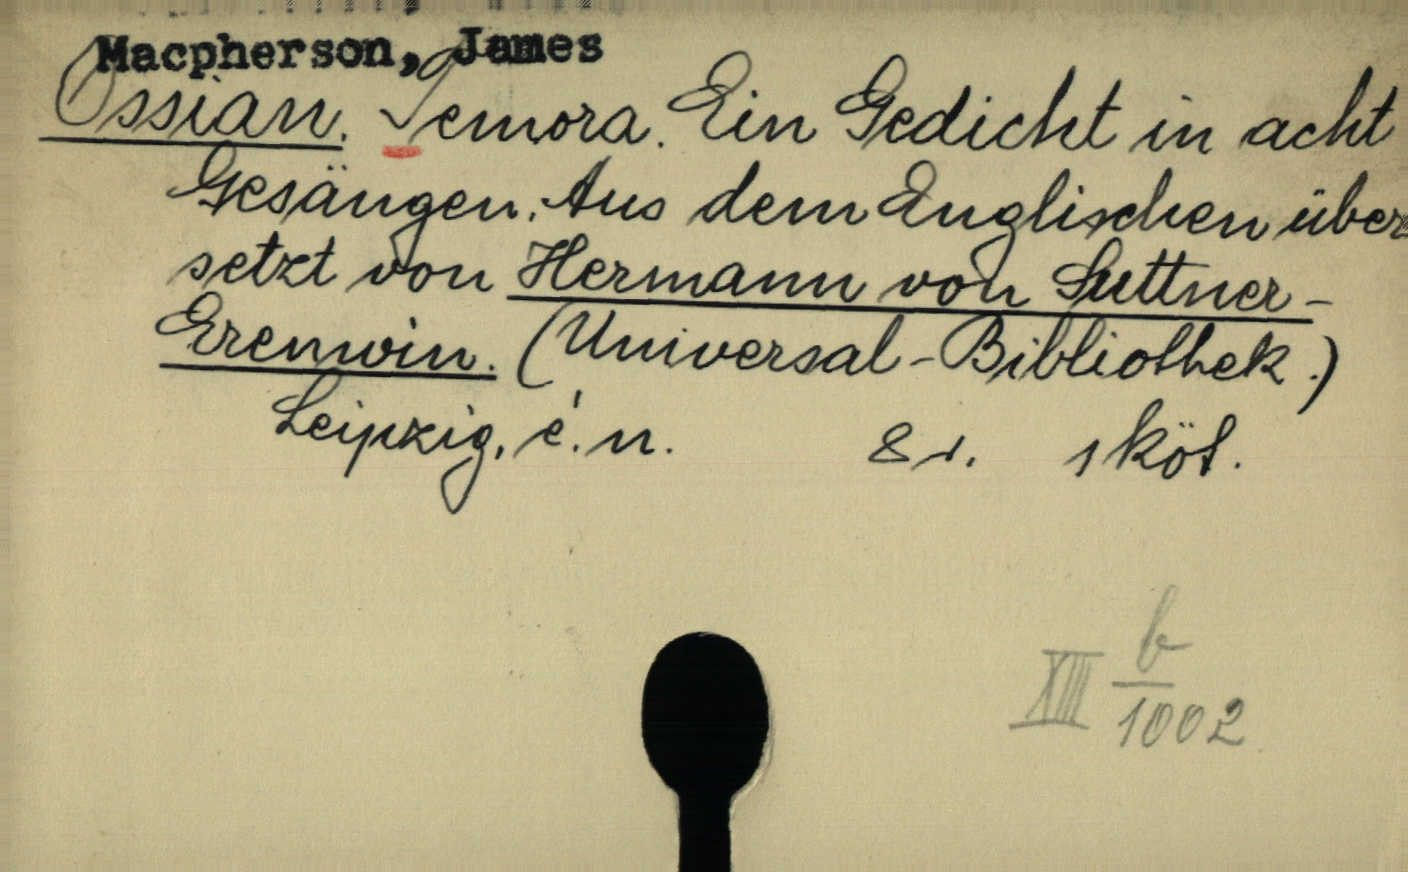 Macpherson, James
Ossian. Temora. Ein Gedicht in acht
Gesängen. Aus dem Englischen über
setzt von Hermann von Suttner-
Erenwin. (Universal-Bibliothek.)
Leipzig, é. n. 8r. 1 köt.
XIII b/1002